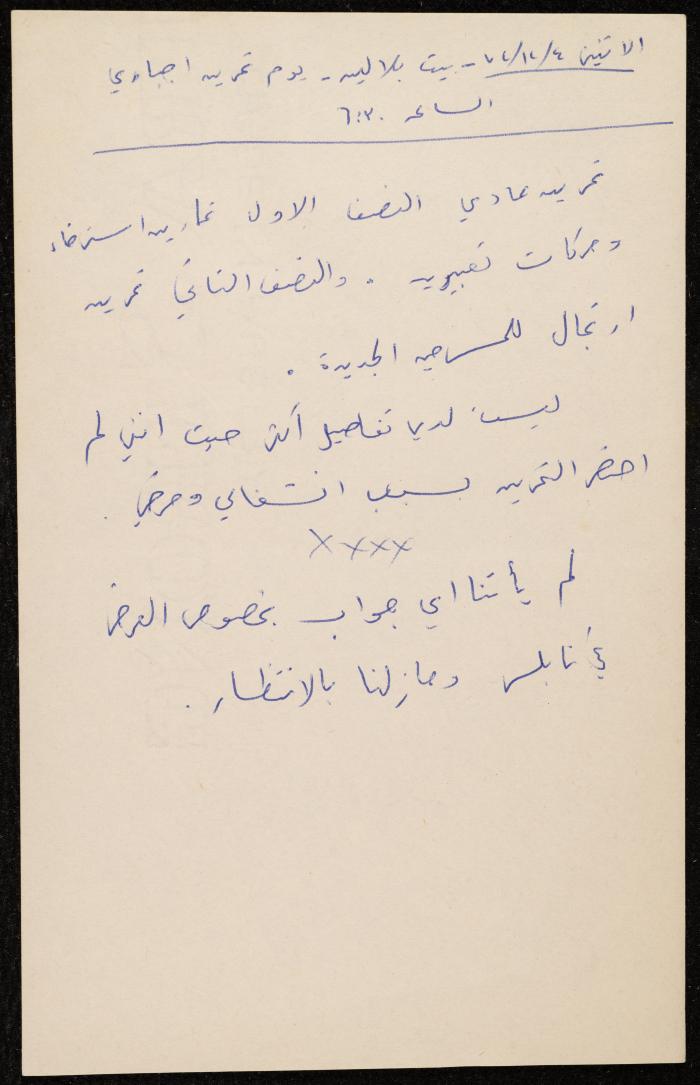 الاثنين ٧٢/١٢/٤ - بيت بلالين - يوم تمرين اجباري
الساعه ٦:٣٠
تمرين عادي النصف الاول تمارين استرخاء
وحركات تعبيريه . والنصف الثاني تمرين
ارتجال للمسرحيه الجديدة .
ليست لدي تفاصيل أكثر حيث انني لم
احضر التمرين بسبب انشغالي ومرضي .
XXXX
لم يأتنا اي جواب بخصوص العرض
في نابلس ومازلنا بالانتظار .